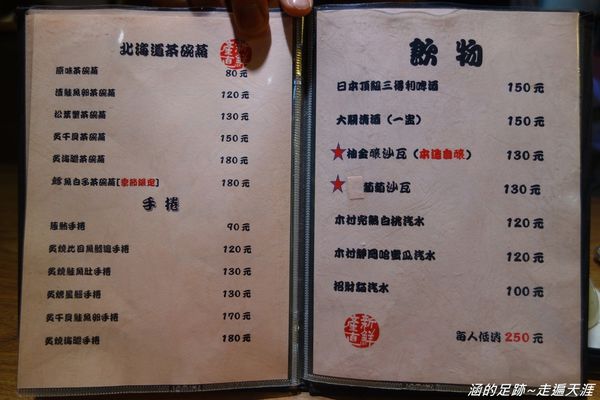 北海道茶碗蒸
產直新鮮
原味茶碗蒸 80元
漬鮭魚卵茶碗蒸 120元
松葉蟹茶碗蒸 130元
炙干貝茶碗蒸 150元
炙海膽茶碗蒸 180元
鱈魚白子茶碗蒸[季節限定] 180元
手捲
極鮪手捲 90元
炙燒比目魚鰭邊手捲 120元
炙燒鮭魚肚手捲 130元
炙烤星鰻手捲 130元
炙干貝鮭魚卵手捲 170元
炙燒海膽手捲 180元
飲物
日本頂級三得利啤酒 150元
大關清酒(一壺) 150元
★柚金釀沙瓦(本造自釀) 130元
★葡萄沙瓦 130元
木村完熟白桃汽水 120元
木村靜岡哈蜜瓜汽水 120元
招財貓汽水 100元
產直新鮮
每人低消250元
涵的足跡~走遍天涯